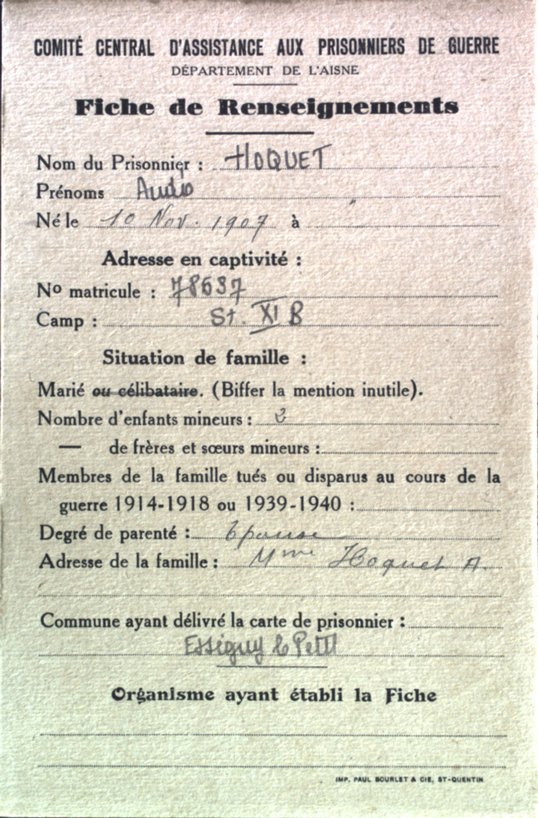 COMITÉ CENTRAL D'ASSISTANCE AUX PRISONNIERS DE GUERRE
DÉPARTEMENT DE L'AISNE
Fiche de Renseignements
Nom du Prisonnier : HOQUET
Prénoms
Né le 10 Nov. 1907 à
Adresse en captivité :
No matricule : 78637
Camp : St. XI B
Situation de famille :
Marié ou célibataire. (Biffer la mention inutile).
Nombre d'enfants mineurs : 3
— de frères et sœurs mineurs :
Membres de la famille tués ou disparus au cours de la
guerre 1914-1918 ou 1939-1940 :
Degré de parenté : Epouse
Adresse de la famille : Mme Hoquet A.
Commune ayant délivré la carte de prisonnier :
Essigny le Petit
Organisme ayant établi la Fiche
IMP. PAUL BOURLET & CIE, ST-QUENTIN